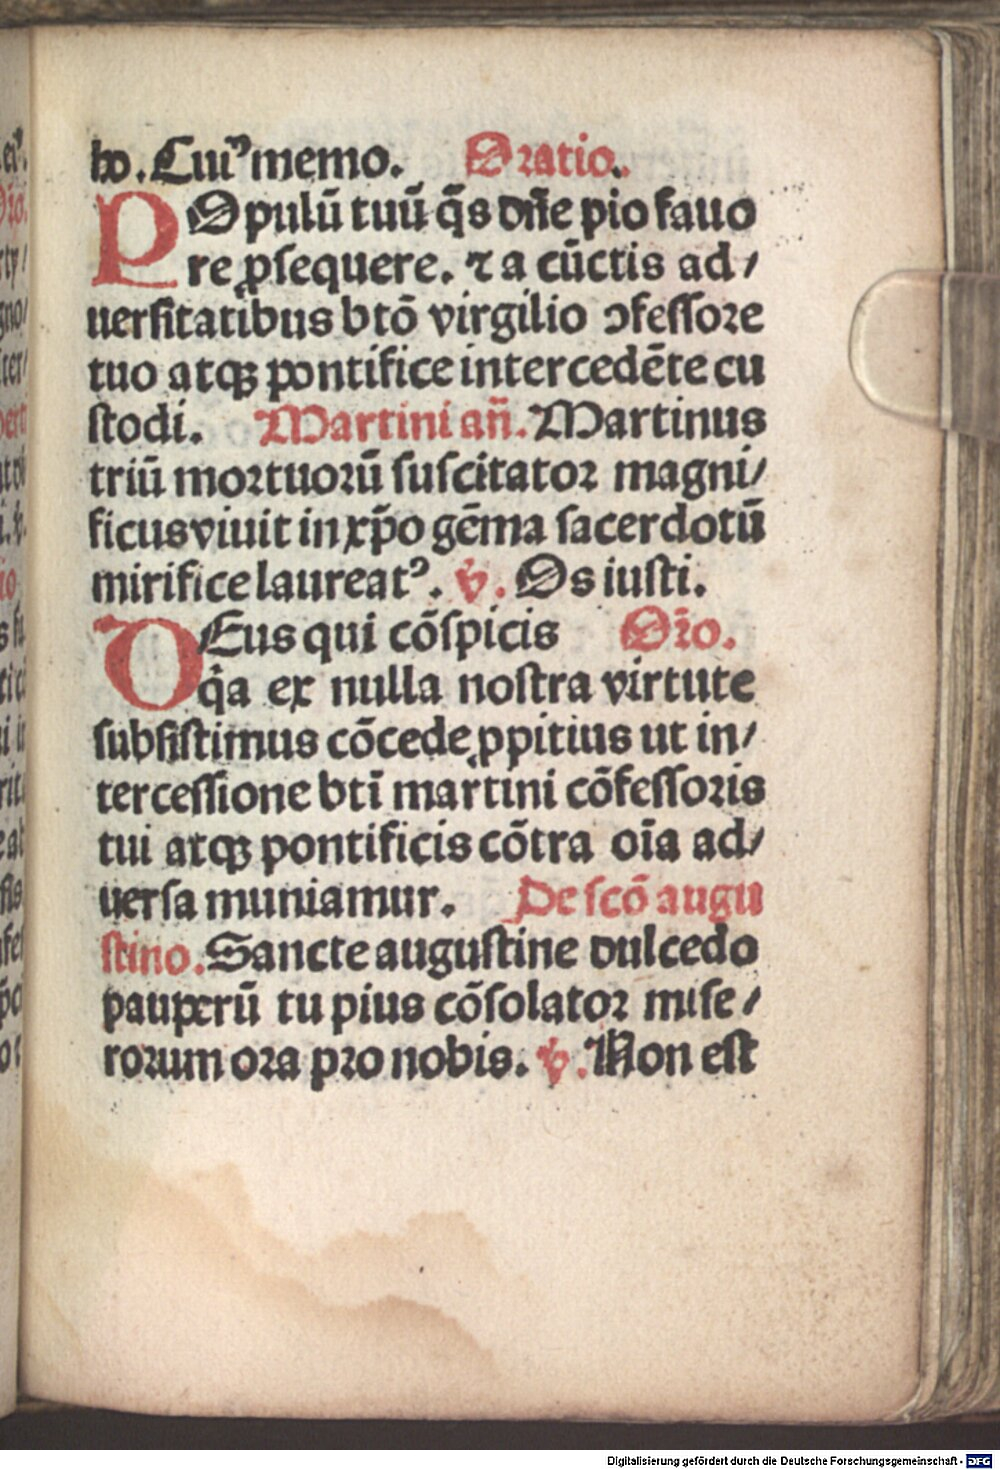 ho. Cuiꝰ memo. Oratio.
POpulū tuū q̄s dn̄e pio fauo
re ꝓsequere. ⁊ a cūctis ad/
uersitatibus btō virgilio ↄfessore
tuo atqꝫ pontifice intercedēte cu
stodi. Martini an̄. Martinus
triū mortuorū suscitator magni/
ficus viuit in xp̄o gēma sacerdotū
mirifice laureatꝰ. ℣. Os iusti.
DEus qui cōspicis Or̄o.
q̄a ex nulla nostra virtute
subsistimus cōcede ꝓpitius ut in/
tercessione btī martini cōfessoris
tui atqꝫ pontificis cōtra oīa ad/
uersa muniamur. De scō augu
stino. Sancte augustine dulcedo
pauperū tu pius cōsolator mise/
rorum ora pro nobis. ℣. Non est
Digitalisierung gefördert durch die Deutsche Forschungsgemeinschaft - DFG